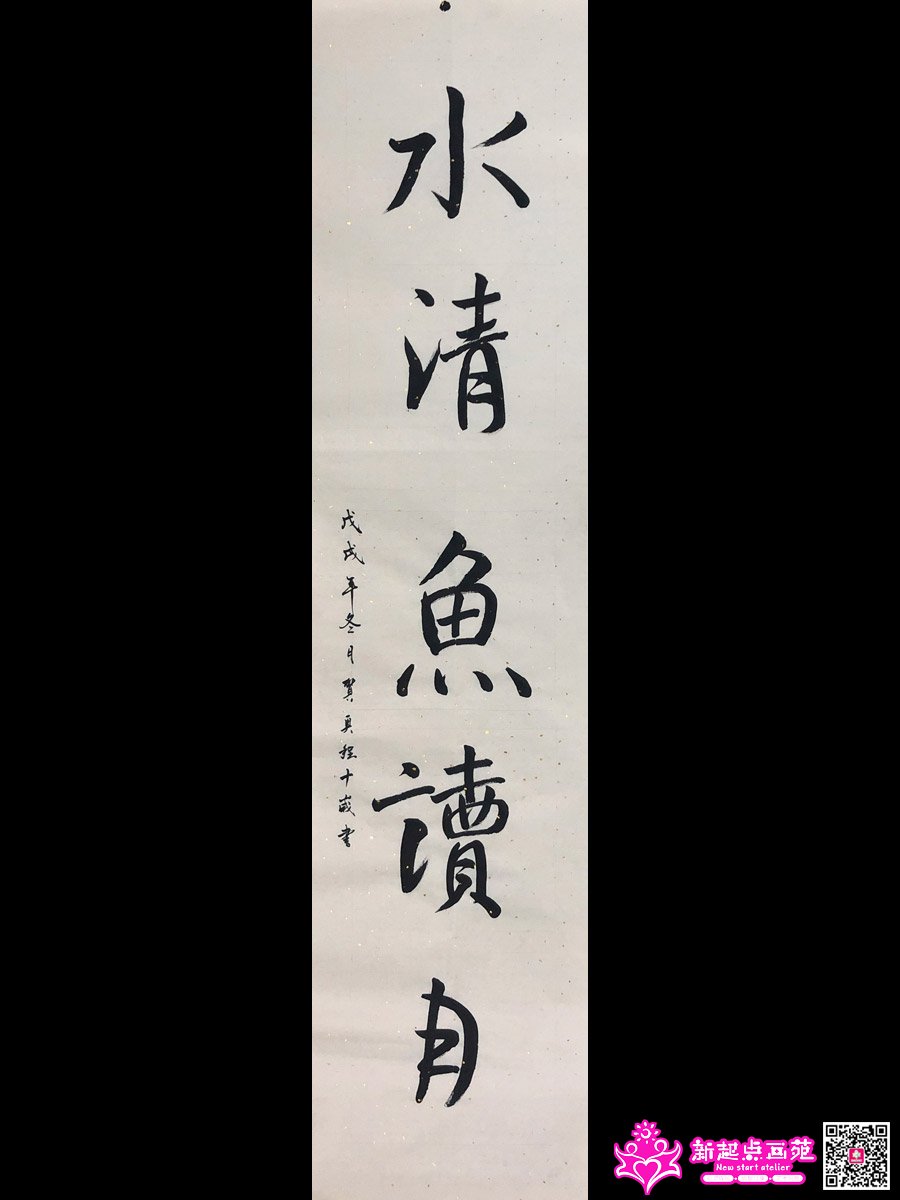 水清魚讀月
戊戌年冬月賀奕程十歲書
新起点画苑
New start atelier